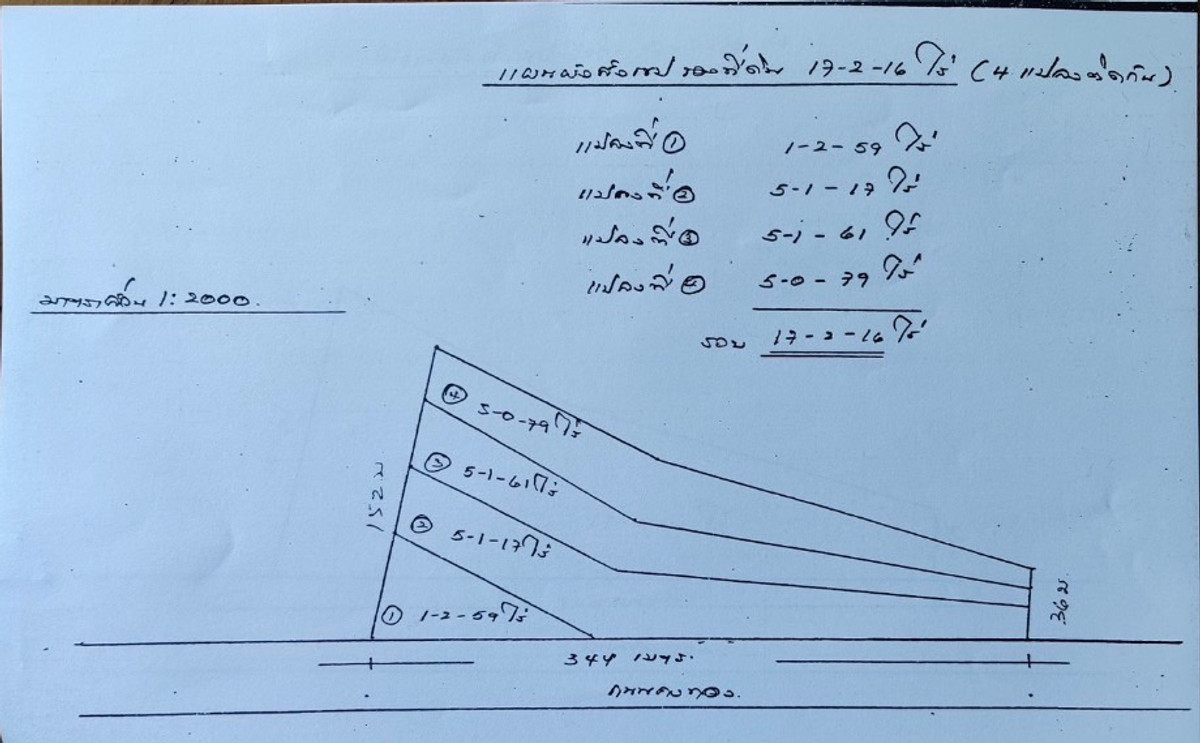 แผนผังสังเขป ของที่ดิน 17-2-16 ไร่ (4 แปลงติดกัน)
แปลงที่ ① 1-2-59 ไร่
แปลงที่ ② 5-1-17 ไร่
แปลงที่ ③ 5-1-61 ไร่
แปลงที่ ④ 5-0-79 ไร่
มาตราส่วน 1:2000.
รวม 17-2-16 ไร่
④ 5-0-79 ไร่
③ 5-1-61 ไร่
152 ม
② 5-1-17 ไร่
① 1-2-59 ไร่
36 ม.
344 เมตร.